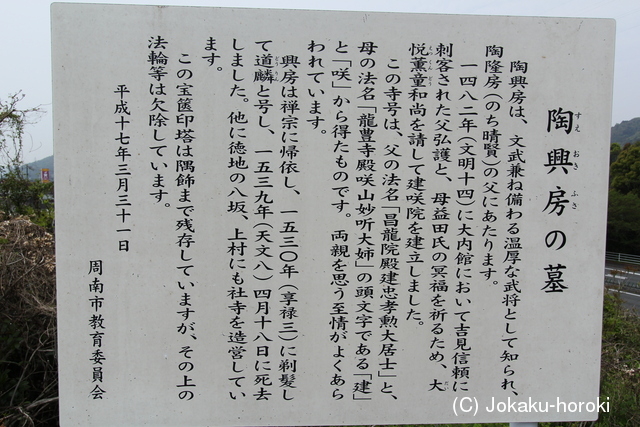 陶興房の墓
すえ おき ふさ
陶興房は、文武兼ね備わる温厚な武将として知られ、
陶隆房(のち晴賢)の父にあたります。
一四八二年(文明十四)に大内館において吉見信頼に
刺客された父弘護と、母益田氏の冥福を祈るため、大
悦薫童和尚を請して建咲院を建立しました。
この寺号は、父の法名「昌龍院殿建忠孝勲大居士」と、
母の法名「龍豊寺殿咲山妙听大姉」の頭文字である「建」
と「咲」から得たものです。両親を思う至情がよくあら
われています。
興房は禅宗に帰依し、一五三〇年(享禄三)に剃髪し
て道麟と号し、一五三九年(天文八)四月十八日に死去
しました。他に徳地の八坂、上村にも社寺を造営してい
ます。
この宝篋印塔は隅飾まで残存していますが、その上の
法輪等は欠除しています。
平成十七年三月三十一日
周南市教育委員会
(C) Jokaku-horoki